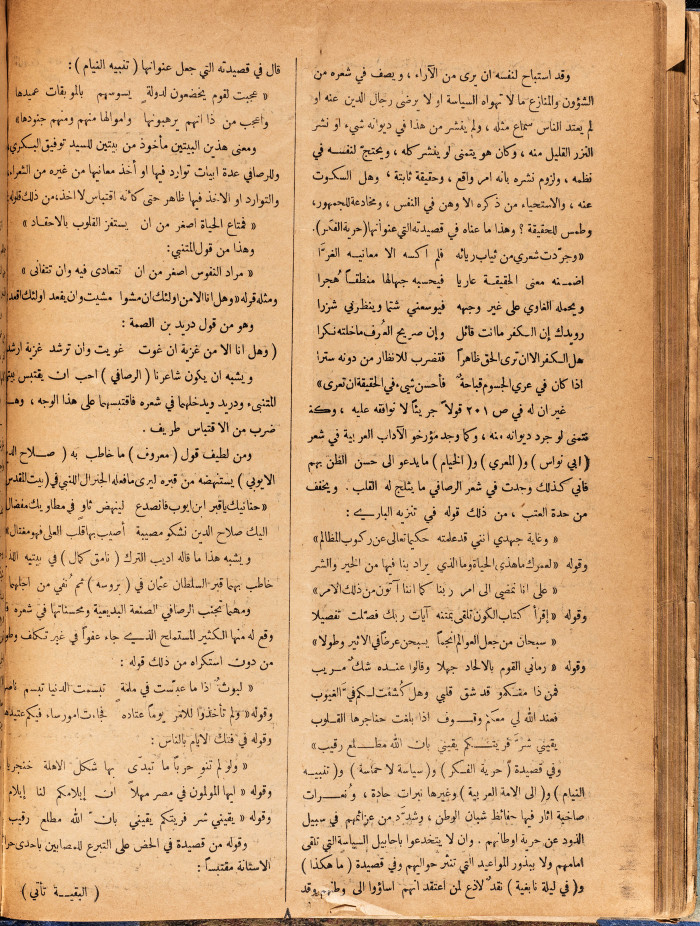 وقد استباح لنفسه ان يرى من الآراء ، ويصف في شعره من
الشؤون والمنازع ما لا تهواه السياسة او لا يرضى رجال الدين عنه او
لم يعتد الناس سماع مثله ، ولم ينشر من هذا في ديوانه شيء او نشر
النزر القليل منه ، وكان هو يتمنى لو ينشر كله ، ويحتج لنفسه في
نظمه ، ولزوم نشره بانه امر واقع ، وحقيقة ثابتة ، وهل السكوت
عنه ، والاستحياء من ذكره الا وهن في النفس ، ومخادعة للجمهور،
وطمس للحقيقة ؟ وهذا ما عناه في قصيدته التي عنوانها (حرية الفكر).
«وجرّدت شعري من ثياب ريائه فلم اكسه الا معانيه الغرّا
اضمنه معنى الحقيقة عاريا فيحسبه جهالها منطقاً هُجرا
ويحمله الغاوي على غير وجهه فيوسعني شتما وينظر في شزرا
رويدك إن الكفر ما انت قائل وإن صريح العُرف ما خلته نكرا
هل الكفر الا ان ترى الحق ظاهراً فتضرب للانظار من دونه سترا
اذا كان في عري الجسوم قباحةٌ فأحسن شيء في الحقيقة ان تعرى»
غير ان له في ص ٢٠١ قولاً جريئاً لا نوافقه عليه ، وكنا
نتمنى لو جرد ديوانه منه ، وكما وجد مؤرخو الآداب العربية في شعر
(ابي نواس) و(المعري) و(الخيام) ما يدعو الى حسن الظن بهم
فاني كذلك وجدت في شعر الرصافي ما يثلج له القلب . ويخفف
من حدة العتب ، من ذلك قوله في تنزيه الباريء :
« وغاية جهدي انني قد علمته حكيما تعالى عن ركوب المظالم»
وقوله «لعمرك ما هذي الحياة وما الذي يراد بنا فيها من الخير والشر
« على انا نمضي الى امر ربنا كما اننا آتون من ذلك الامر»
وقوله «إقرأ كتاب الكون تلقى بمتنه آيات ربك فصّلت تفصيلا
« سبحان من جعل العوالم انجما يسبحن عرضا في الاثير وطولا»
وقوله « رماني القوم بالالحاد جهلا وقالوا عنده شك مريب
فمن ذا منكمو قد شق قلبي وهل كُشفت لكم فيّ الغيوب
فعند الله لي معكم وقوف اذا بلغت حناجرها القلوب
يقيني شرّ فريتكم يقيني بان الله مطلع رقيب»
وفي قصيدة (حرية الفكر) و(سياسة لا حماسة) و(تنبيه
النيام) و(الى الامة العربية) وغيرها نبرات حادة ، ونعرات
صاخبة اثار فيها حفائظ شبان الوطن ، وشدّد من عزائمهم في سبيل
الذود عن حرية اوطانهم . وان لا ينخدعوا باحابيل السياسة التي تلقى
امامهم ولا ببذور المواعيد التي تنثر حواليهم وفي قصيدة (ما هكذا)
و(في ليلة نابغية) نقد لاذع لمن اعتقد انهم اساؤوا الى وطنهم وقد
قال في قصيدته التي جعل عنوانها (تنبيه النيام) :
« عجبت لقوم يخضعون لدولة يسوسهم بالموبقات عميدها
واعجب من ذا انهم يرهبونها واموالها منهم ومنهم جنودها»
ومعنى هذين البيتين مأخوذ من بيتين للسيد توفيق البكري،
وللرصافي عدة ابيات توارد فيها او أخذ معانيها من غيره من الشعراء،
والتوارد او الاخذ فيها ظاهر حتى كأنه اقتباس لا اخذ، من ذلك قوله:
« فمتاع الحياة اصغر من ان يستفز القلوب بالاحقاد»
وهذا من قول المتنبي:
« مراد النفوس اصغر من ان نتعادى فيه وان نتفانى»
ومثله قوله «وهل انا الا من اولئك ان مشوا مشيت وان يقعد اولئك اقعد
وهو من قول دريد بن الصمة :
(وهل انا الا من غزية ان غوت غويت وان ترشد غزية ارشد
ويشبه ان يكون شاعرنا (الرصافي) احب ان يقتبس
المتنبيء ودريد ويدخلهما في شعره فاقتبسهما على هذا الوجه ،
ضرب من الاقتباس طريف .
ومن لطيف قول (معروف) ما خاطب به (صلاح
الايوبي) يستنهضه من قبره ليرى ما فعله الجنرال اللنبي في (بيت المقدس
«حنانيك يا قبر ابن ايوب فانصدع لينهض ثاو في مطاويك مفضال
اليك صلاح الدين نشكو مصيبة أصيب بها قلب العلى فهو مغتال»
ويشبه هذا ما قاله اديب الترك (نامق كمال) في بيتيه
خاطب بهما قبر السلطان عثمان في (بروسه) ثم نُفي من اجلهما
ومهما تجنب الرصافي الصنعة البديعية ومحسناتها في شعره
وقع له منها الكثير المستملح الذي جاء عفواً في غير تكلف
من دون استكراه من ذلك قوله :
« ليوث اذا ما عبّست في ملمة تبسمت الدنيا تبسم
وقوله «ولم تأخذوا للامر يوماً عتاده فجاءت امور ساء فيكم عتيدها
وقوله في فتك الايام بالناس :
« ولو لم تنو حربا ما تبدى بها شكل الاهلة
وقوله «ايها المولمون في مصر مهلاً ان إيلامكم لنا
وقوله «يقيني شر فريتكم يقيني بانّ الله مطلع رقيب
وقوله من قصيدة في الحض على التبرع للمصابين باحدى
الاستانة مقتبساً :
(البقية تأتي)
٨